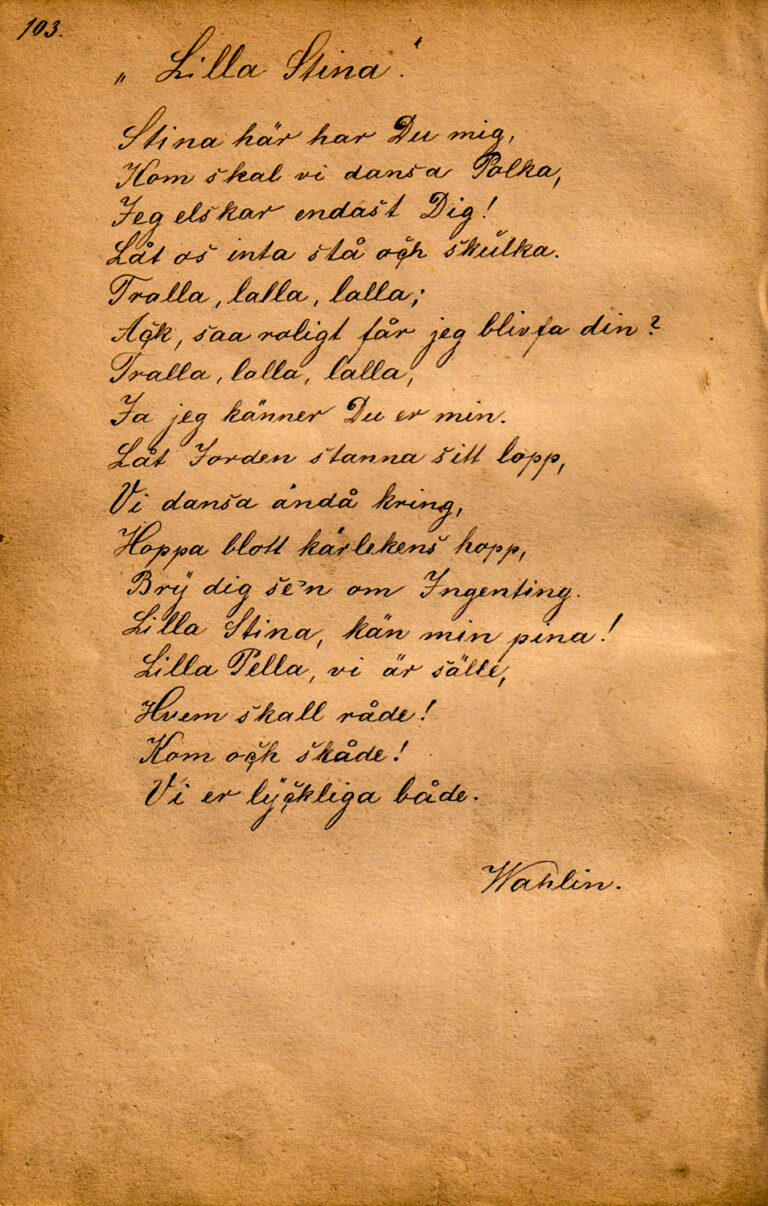 103.
„Lilla Stina."
Stina här har Du mig,
Kom skal vi dansa Polka,
Jeg elskar endast Dig!
Låt os inta stå och skulka.
Tralla, lalla, lalla;
Ack, saa roligt får jeg blivfa din?
Tralla, lalla, lalla,
Ja jeg känner Du er min.
Låt Jorden stanna sitt lopp,
Vi dansa ändå kring,
Hoppa blott kärlekens hopp,
Bry dig se'n om Ingenting.
Lilla Stina, kän min pina!
Lilla Pella, vi är sälle,
Hvem skall råde!
Kom och skåde!
Vi er lyckliga både.
Wahlin.